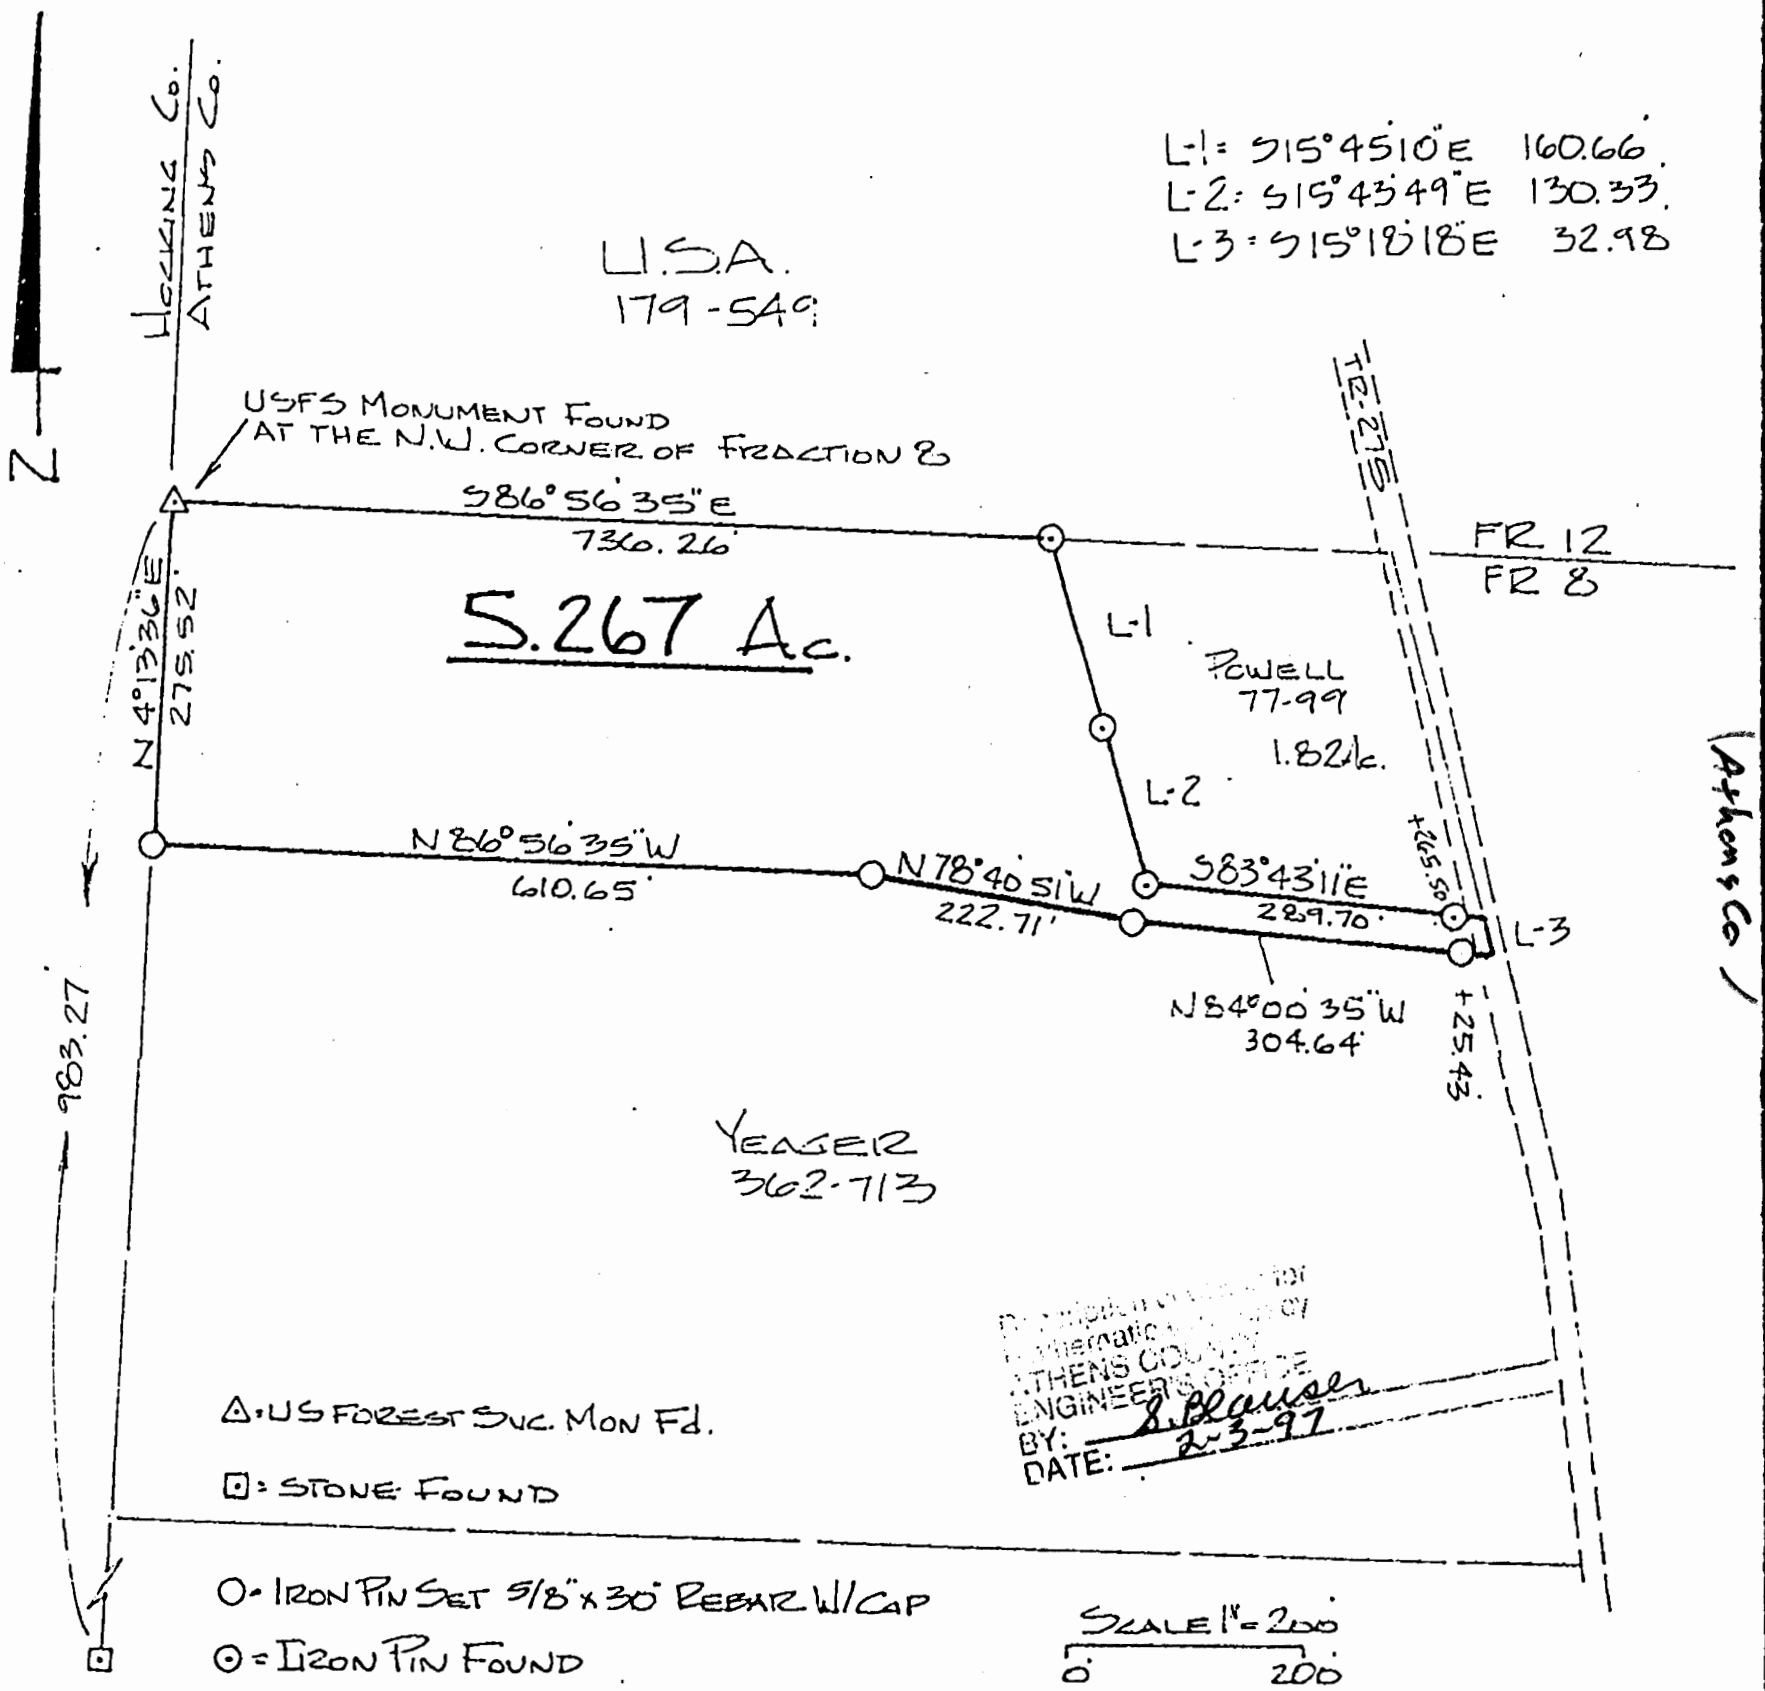 HOCKING Co.
ATHENS Co.
L-1= S15°45'10"E 160.66'
L-2= S15°43'49"E 130.33'
L-3= S15°18'18"E 32.98
U.S.A.
179-549
N
TR-275
USFS MONUMENT FOUND
AT THE N.W. CORNER OF FRACTION 8
S86°56'35"E
736.26'
FR 12
FR 8
N 4°13'36"E
275.52'
5.267 Ac.
L-1
POWELL
77-99
1.82Ac.
L-2
(Athens Co)
N86°56'35"W
610.65'
N78°40'51"W
222.71'
S83°43'11"E
289.70'
+265.50'
L-3
N84°00'35"W
304.64'
+25.43'
983.27
YEAGER
362-713
for
by
ATHENS COUNTY
ENGINEER'S OFFICE
BY: S. Blauser
DATE: 2-3-97
△=US FOREST SVC. MON Fd.
⊡= STONE FOUND
O= IRON PIN SET 5/8"x30" REBAR W/CAP
⊙= IRON PIN FOUND
SCALE 1"=200'
0' 200'